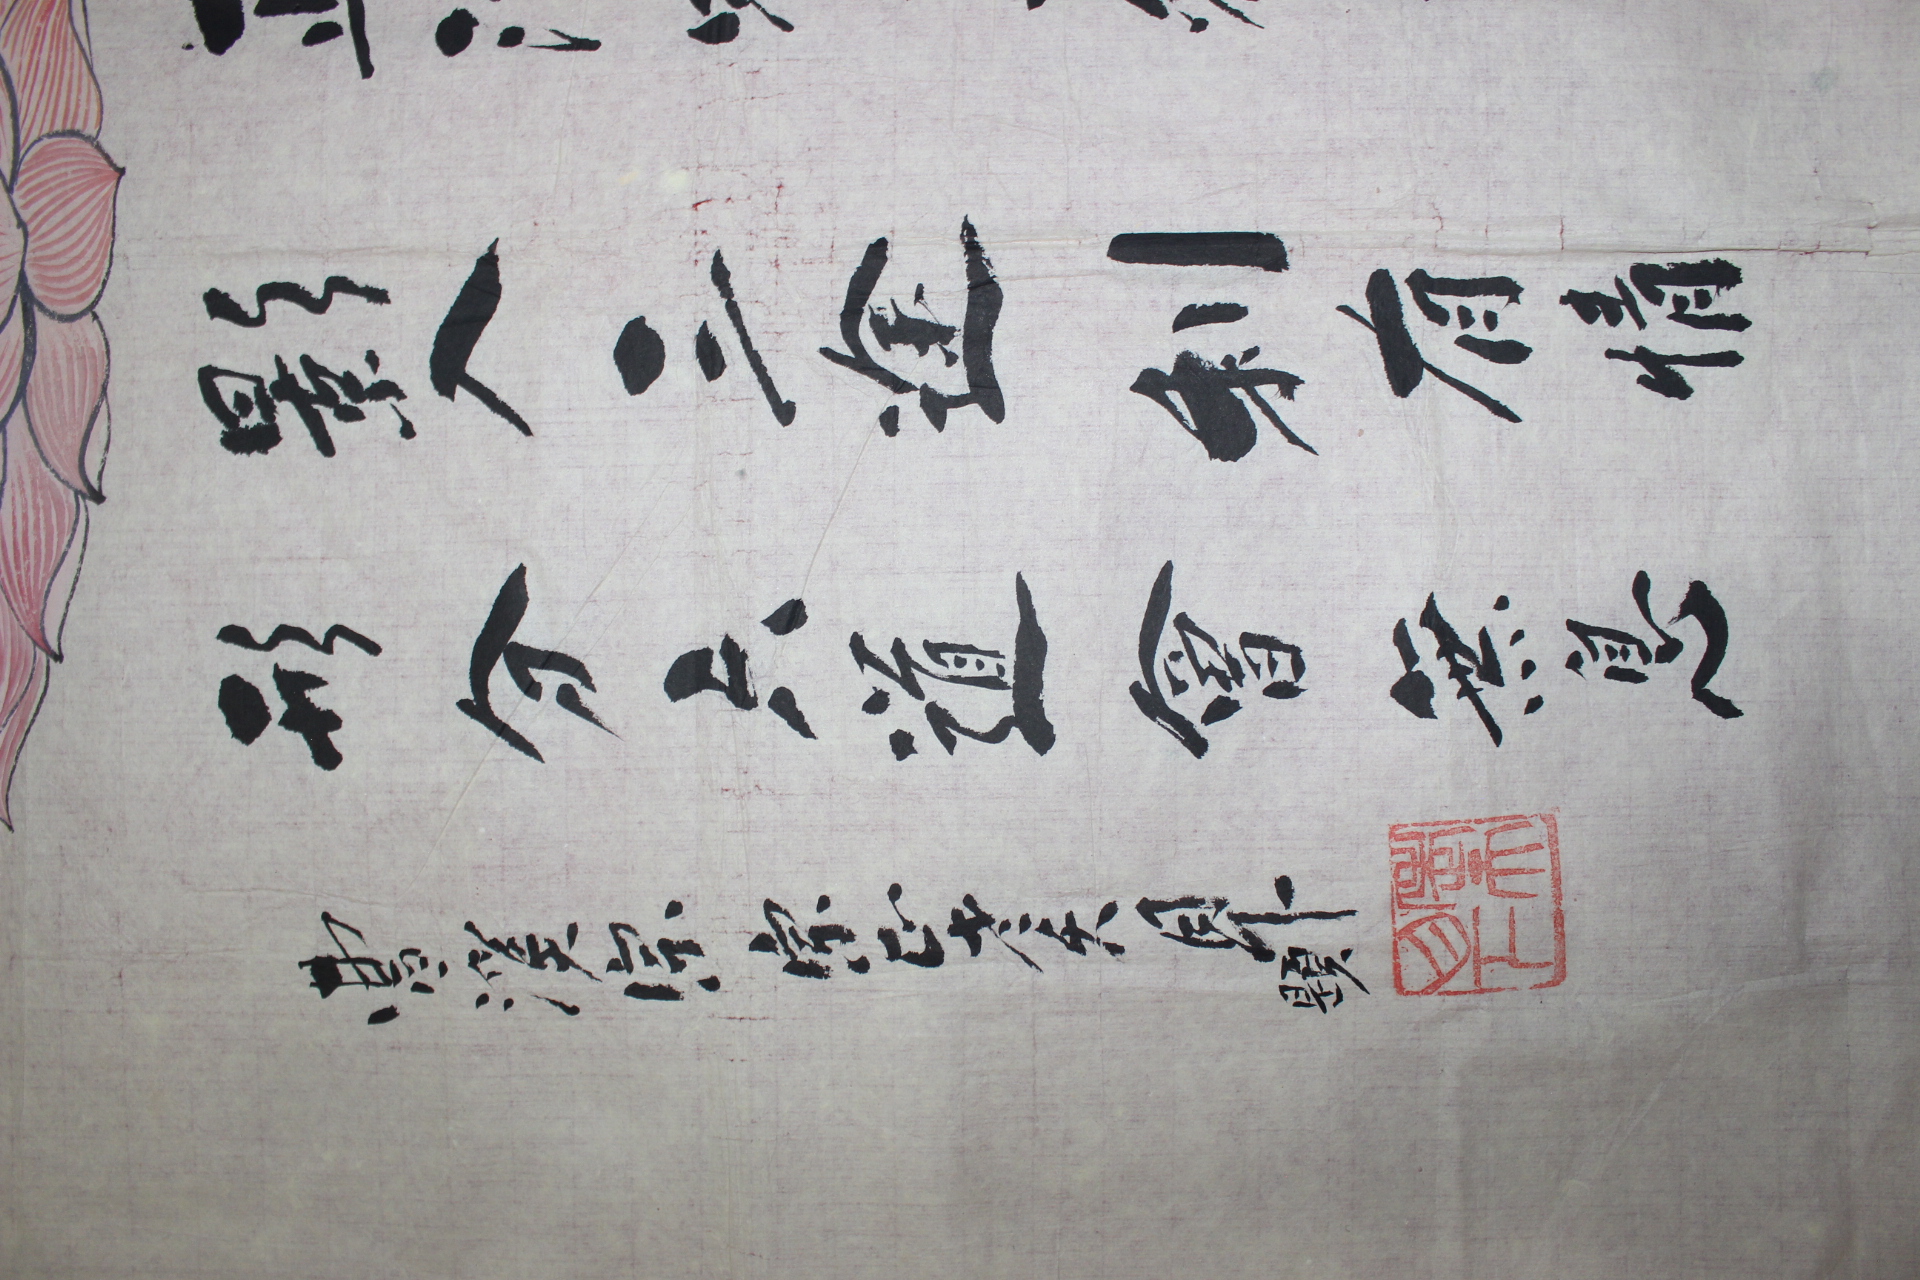 正法明
影入三途利有情
形分六道曾無息
曹溪宗 宗正老天 昇 題